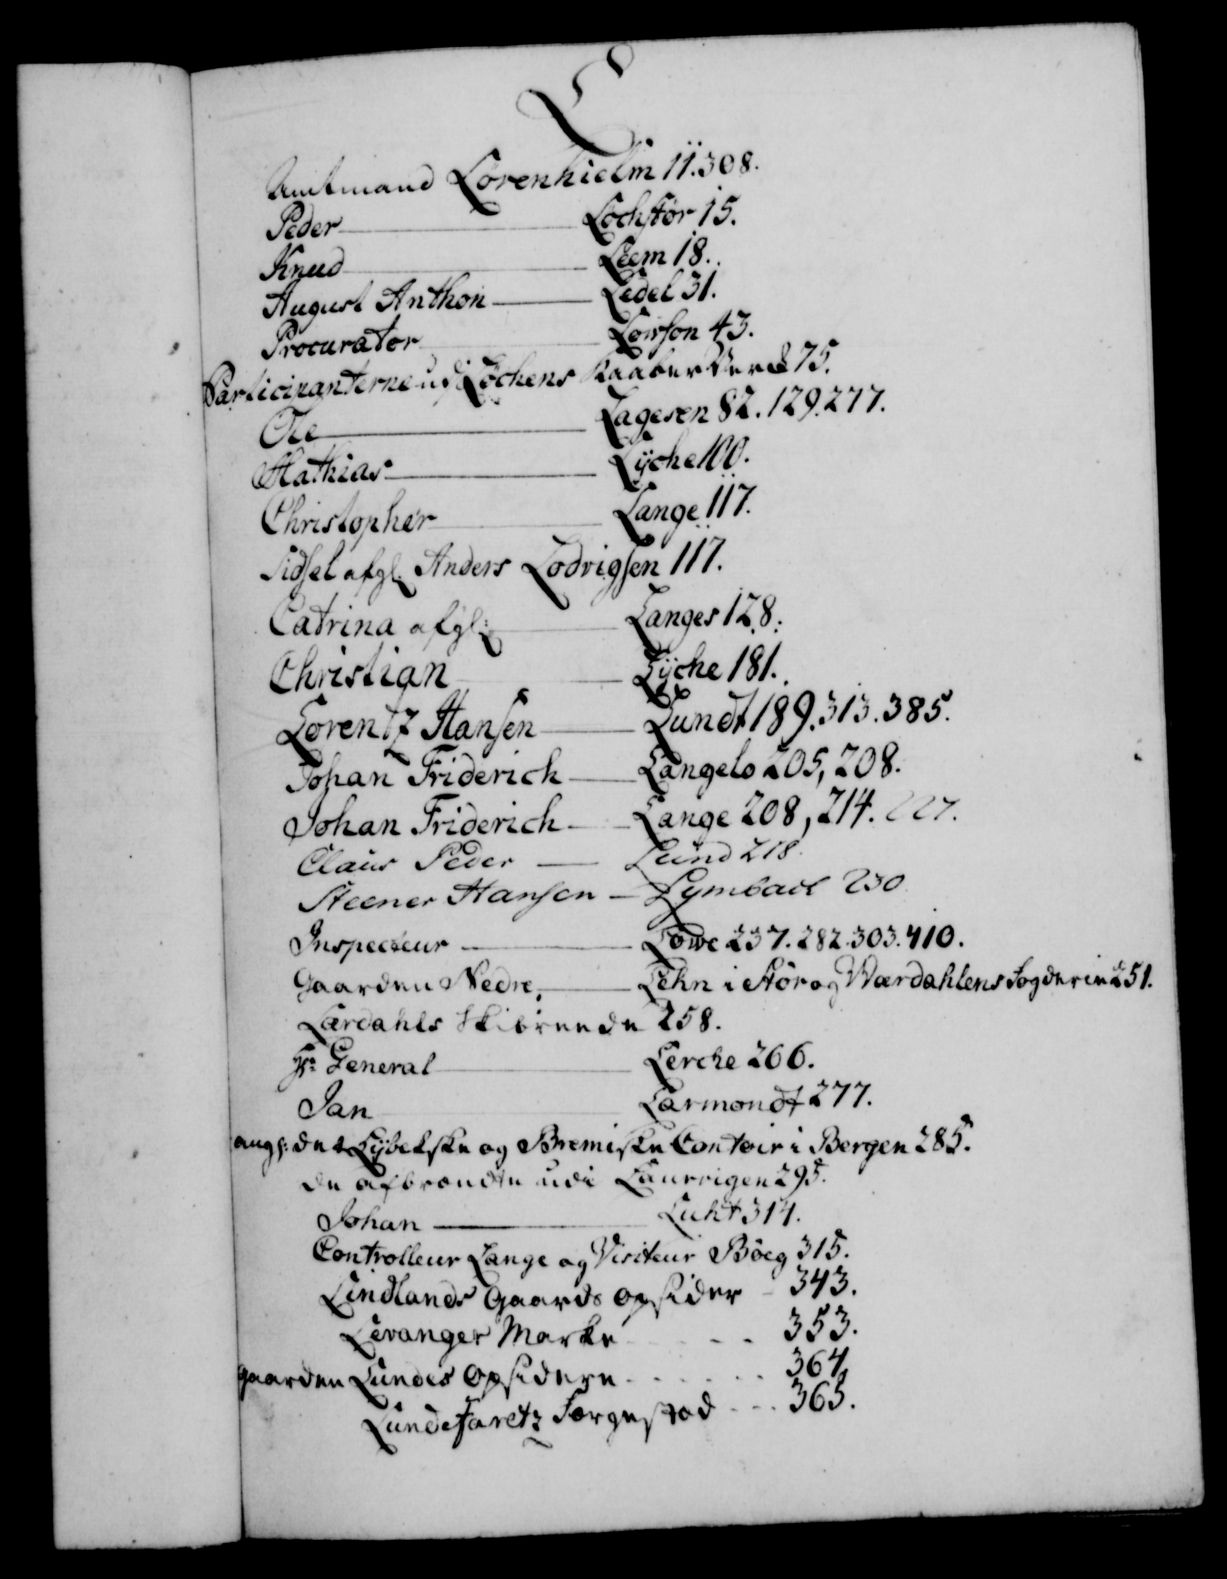 L
Amtmand Lövenhielm 11.308.
Peder Lochstør 15.
Knud Leem 18.
August Anthon Ledel 31.
Procurator Lowson 43.
Participanterne udj Løchens Kaaber Verck 75.
Ole Lagesen 82. 129. 277.
Mathias Lÿche 100.
Christopher Lange 117.
Sidsel afgl. Anders Lodvigsen 117.
Catrina afgl: Langes 128.
Christian Lÿche 181.
Lorentz Hansen Lundt 189. 313. 385.
Johan Friderich Langelo 205, 208.
Johan Friderich Lange 208, 214. 227.
Claus Peder Lund 218.
Steener Hansen Lymbach 230
Inspecteur Lowe 237. 282. 303. 410.
Gaarden Nedre Lehn i Stör og Værdahlens Fogderie 251.
Lærdahls Skibreede 258.
Hr. General Lerche 266.
Jan Larmondt 277.
angl: det Lÿbekske og Bremiske Contoir i Bergen 285.
de afbrændte udi Laurvigen 295.
Johan Lukt 314.
Controlleur Lange og Visiteur Böeg 315.
Lindlands Gaards Opsider 343.
Levanger Marked 353.
Gaarden Lundes Opsidere 364.
Lunde Færgestæd 365.